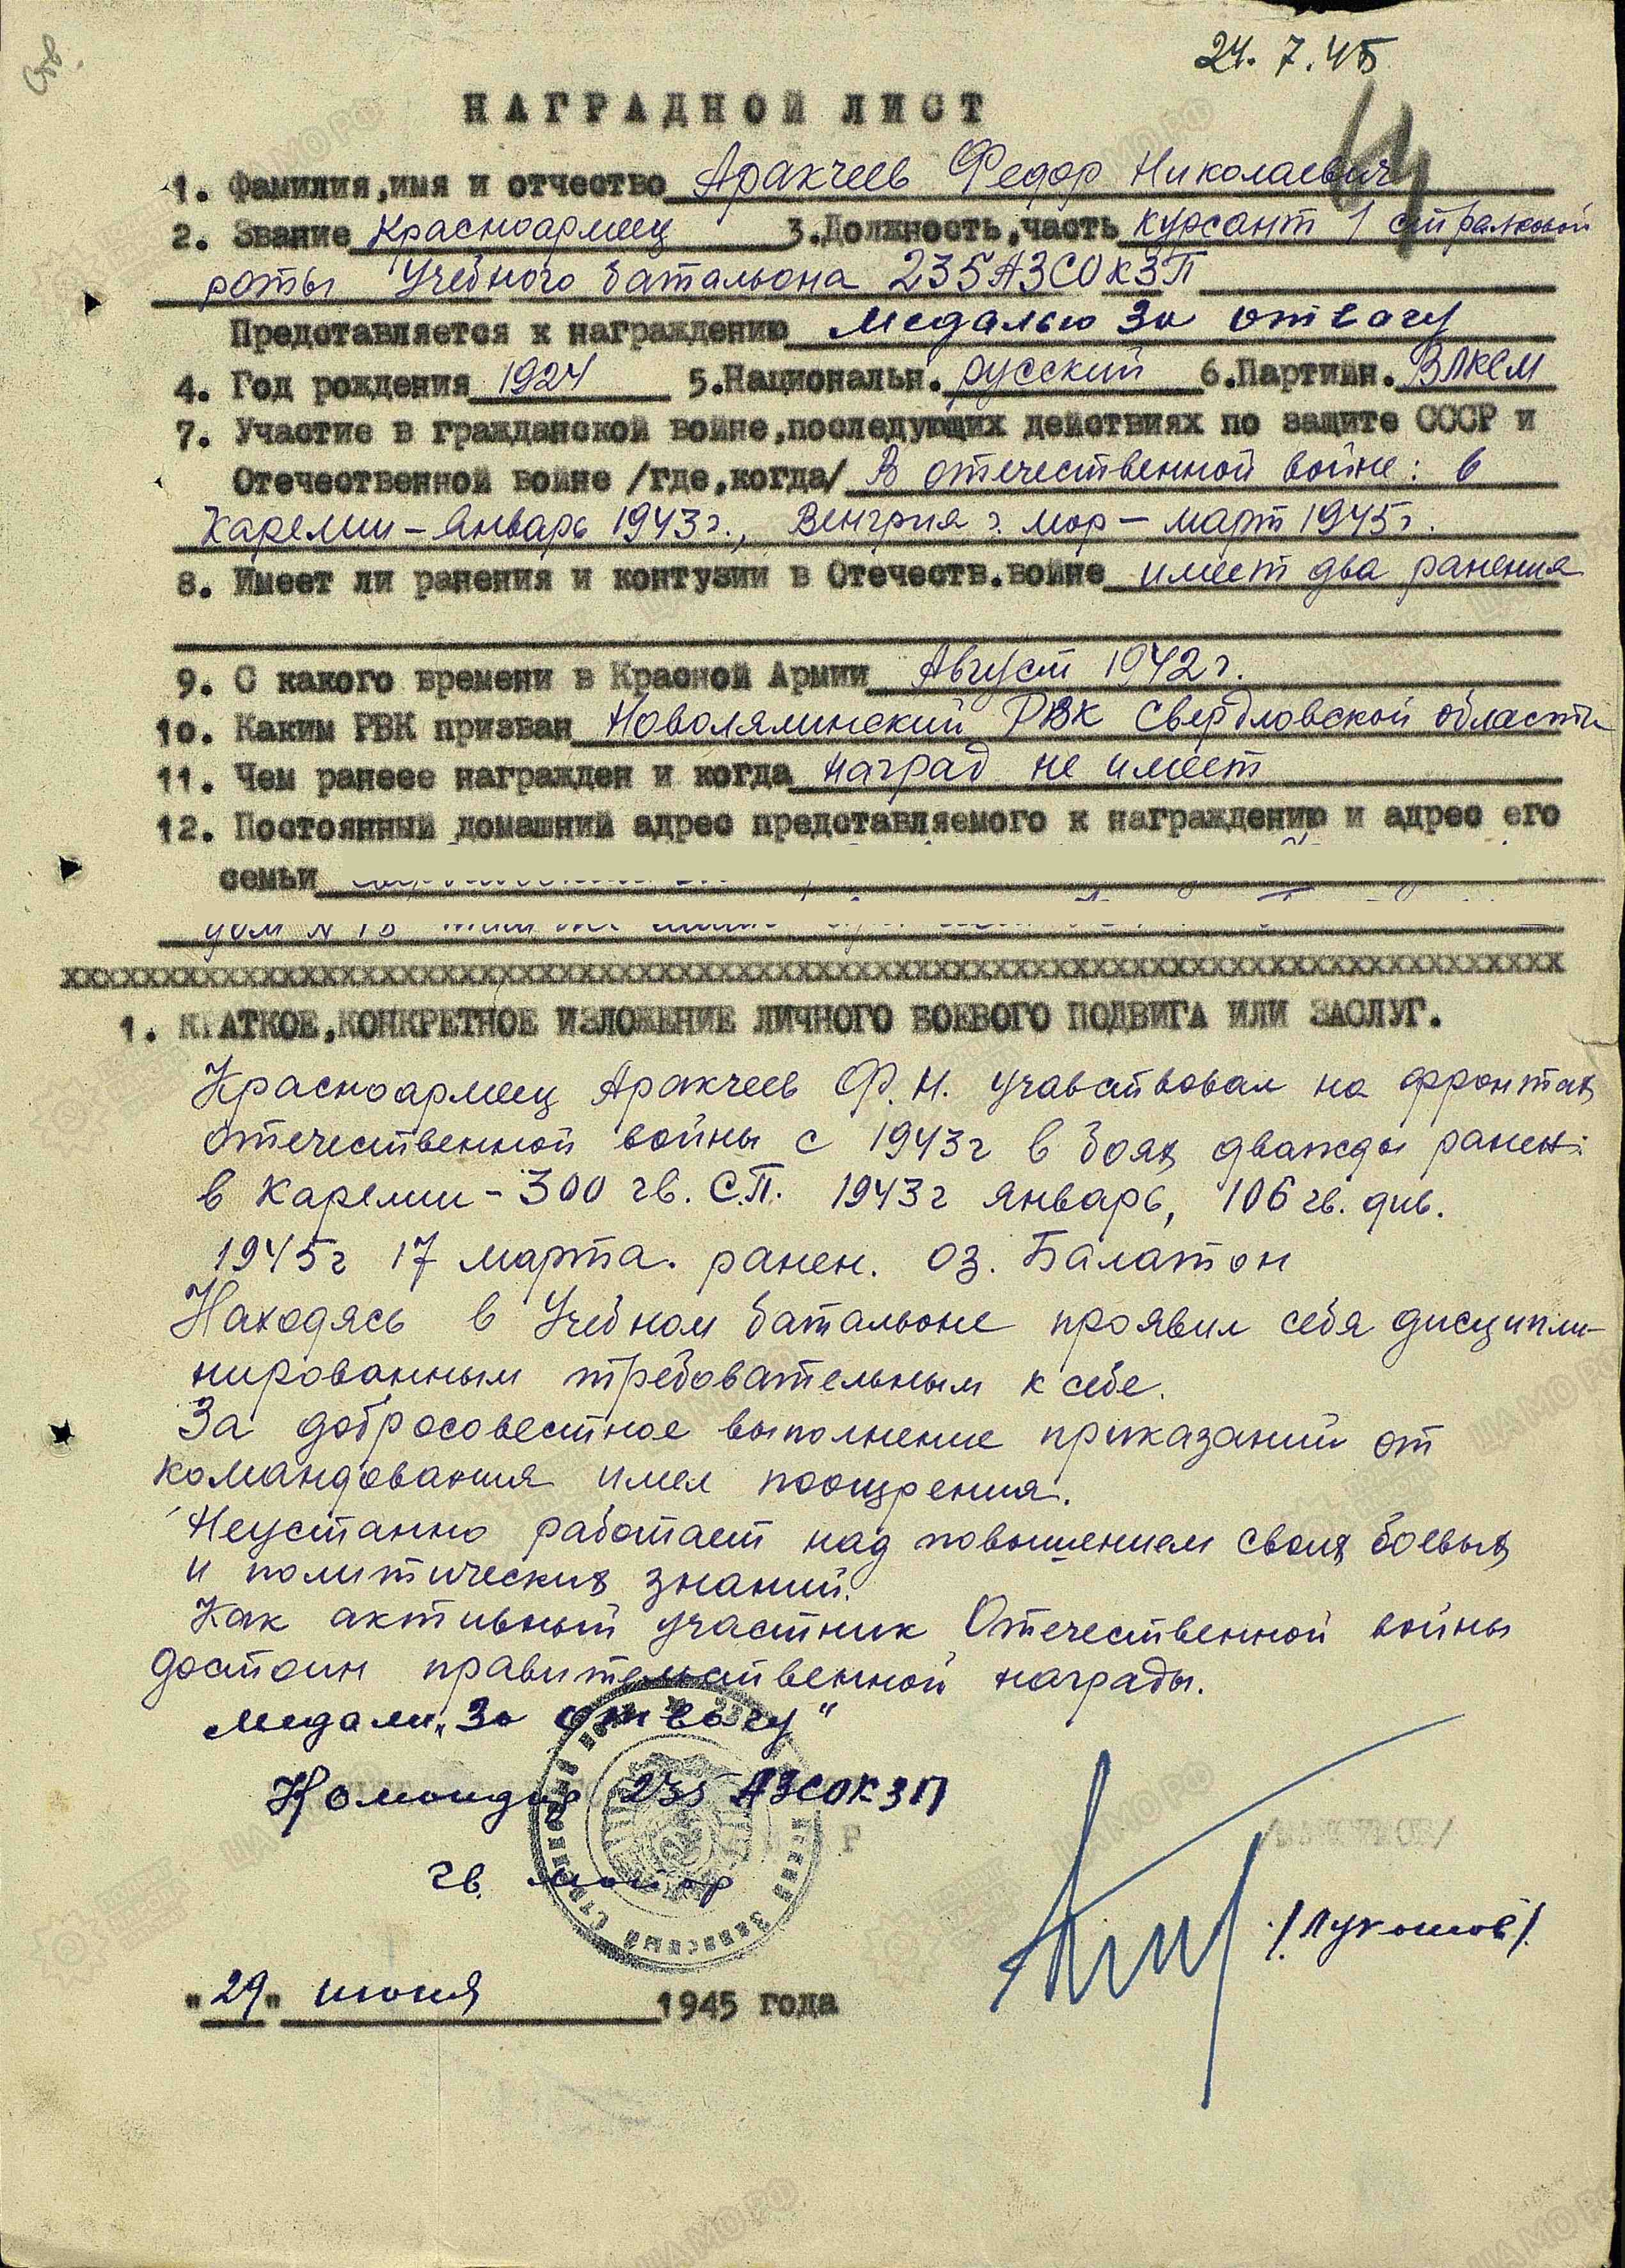 24. 7. 45
НАГРАДНОЙ ЛИСТ
1. Фамилия, имя и отчество Аракчеев Федор Николаевич
2. Звание Красноармеец 3. Должность, часть курсант 1 стралковой
роты Учебного батальона 235 АЗСОКЗП
Представляется к награждению Медалью За отвагу
4. Год рождения 1924 5. Национальн. русский 6. Партийн. ВЛКСМ
7. Участие в гражданской войне, последующих действиях по защите СССР и
Отечественной войне /где, когда/ В отечественной войне: в
Карелии - Январь 1943 г., Венгрия г. Мор - март 1945 г.
8. Имеет ли ранения и контузии в Отечеств. войне имеет два ранения
9. С какого времени в Красной Армии Август 1942 г.
10. Каким РВК призван Новолялинский РВК Свердловской области
11. Чем ранеее награжден и когда наград не имеет
12. Постоянный домашний адрес представляемого к награждению и адрес его
семьи
1. КРАТКОЕ, КОНКРЕТНОЕ ИЗЛОЖЕНИЕ ЛИЧНОГО БОЕВОГО ПОДВИГА ИЛИ ЗАСЛУГ.
Красноармеец Аракчеев Ф. Н. учавствовал на фронтах
отечественной войны с 1943 г в боях дважды ранен:
в Карелии - 300 гв. С.П. 1943 г Январь, 106 гв. див.
1945 г 17 марта. ранен. оз. Балатон
Находясь в Учебном батальоне проявил себя дисципли-
нированным требовательным к себе.
За добросовестное выполнение приказаний от
командования имел поощрения.
Неустанно работает над повышением своих боевых
и политических знаний.
Как активный участник Отечественной войны
достоин правительственной награды.
Медали „За отвагу"
Командир 235 АЗСОКЗП
гв. майор
/Лукошов/.
"29" июня 1945 года